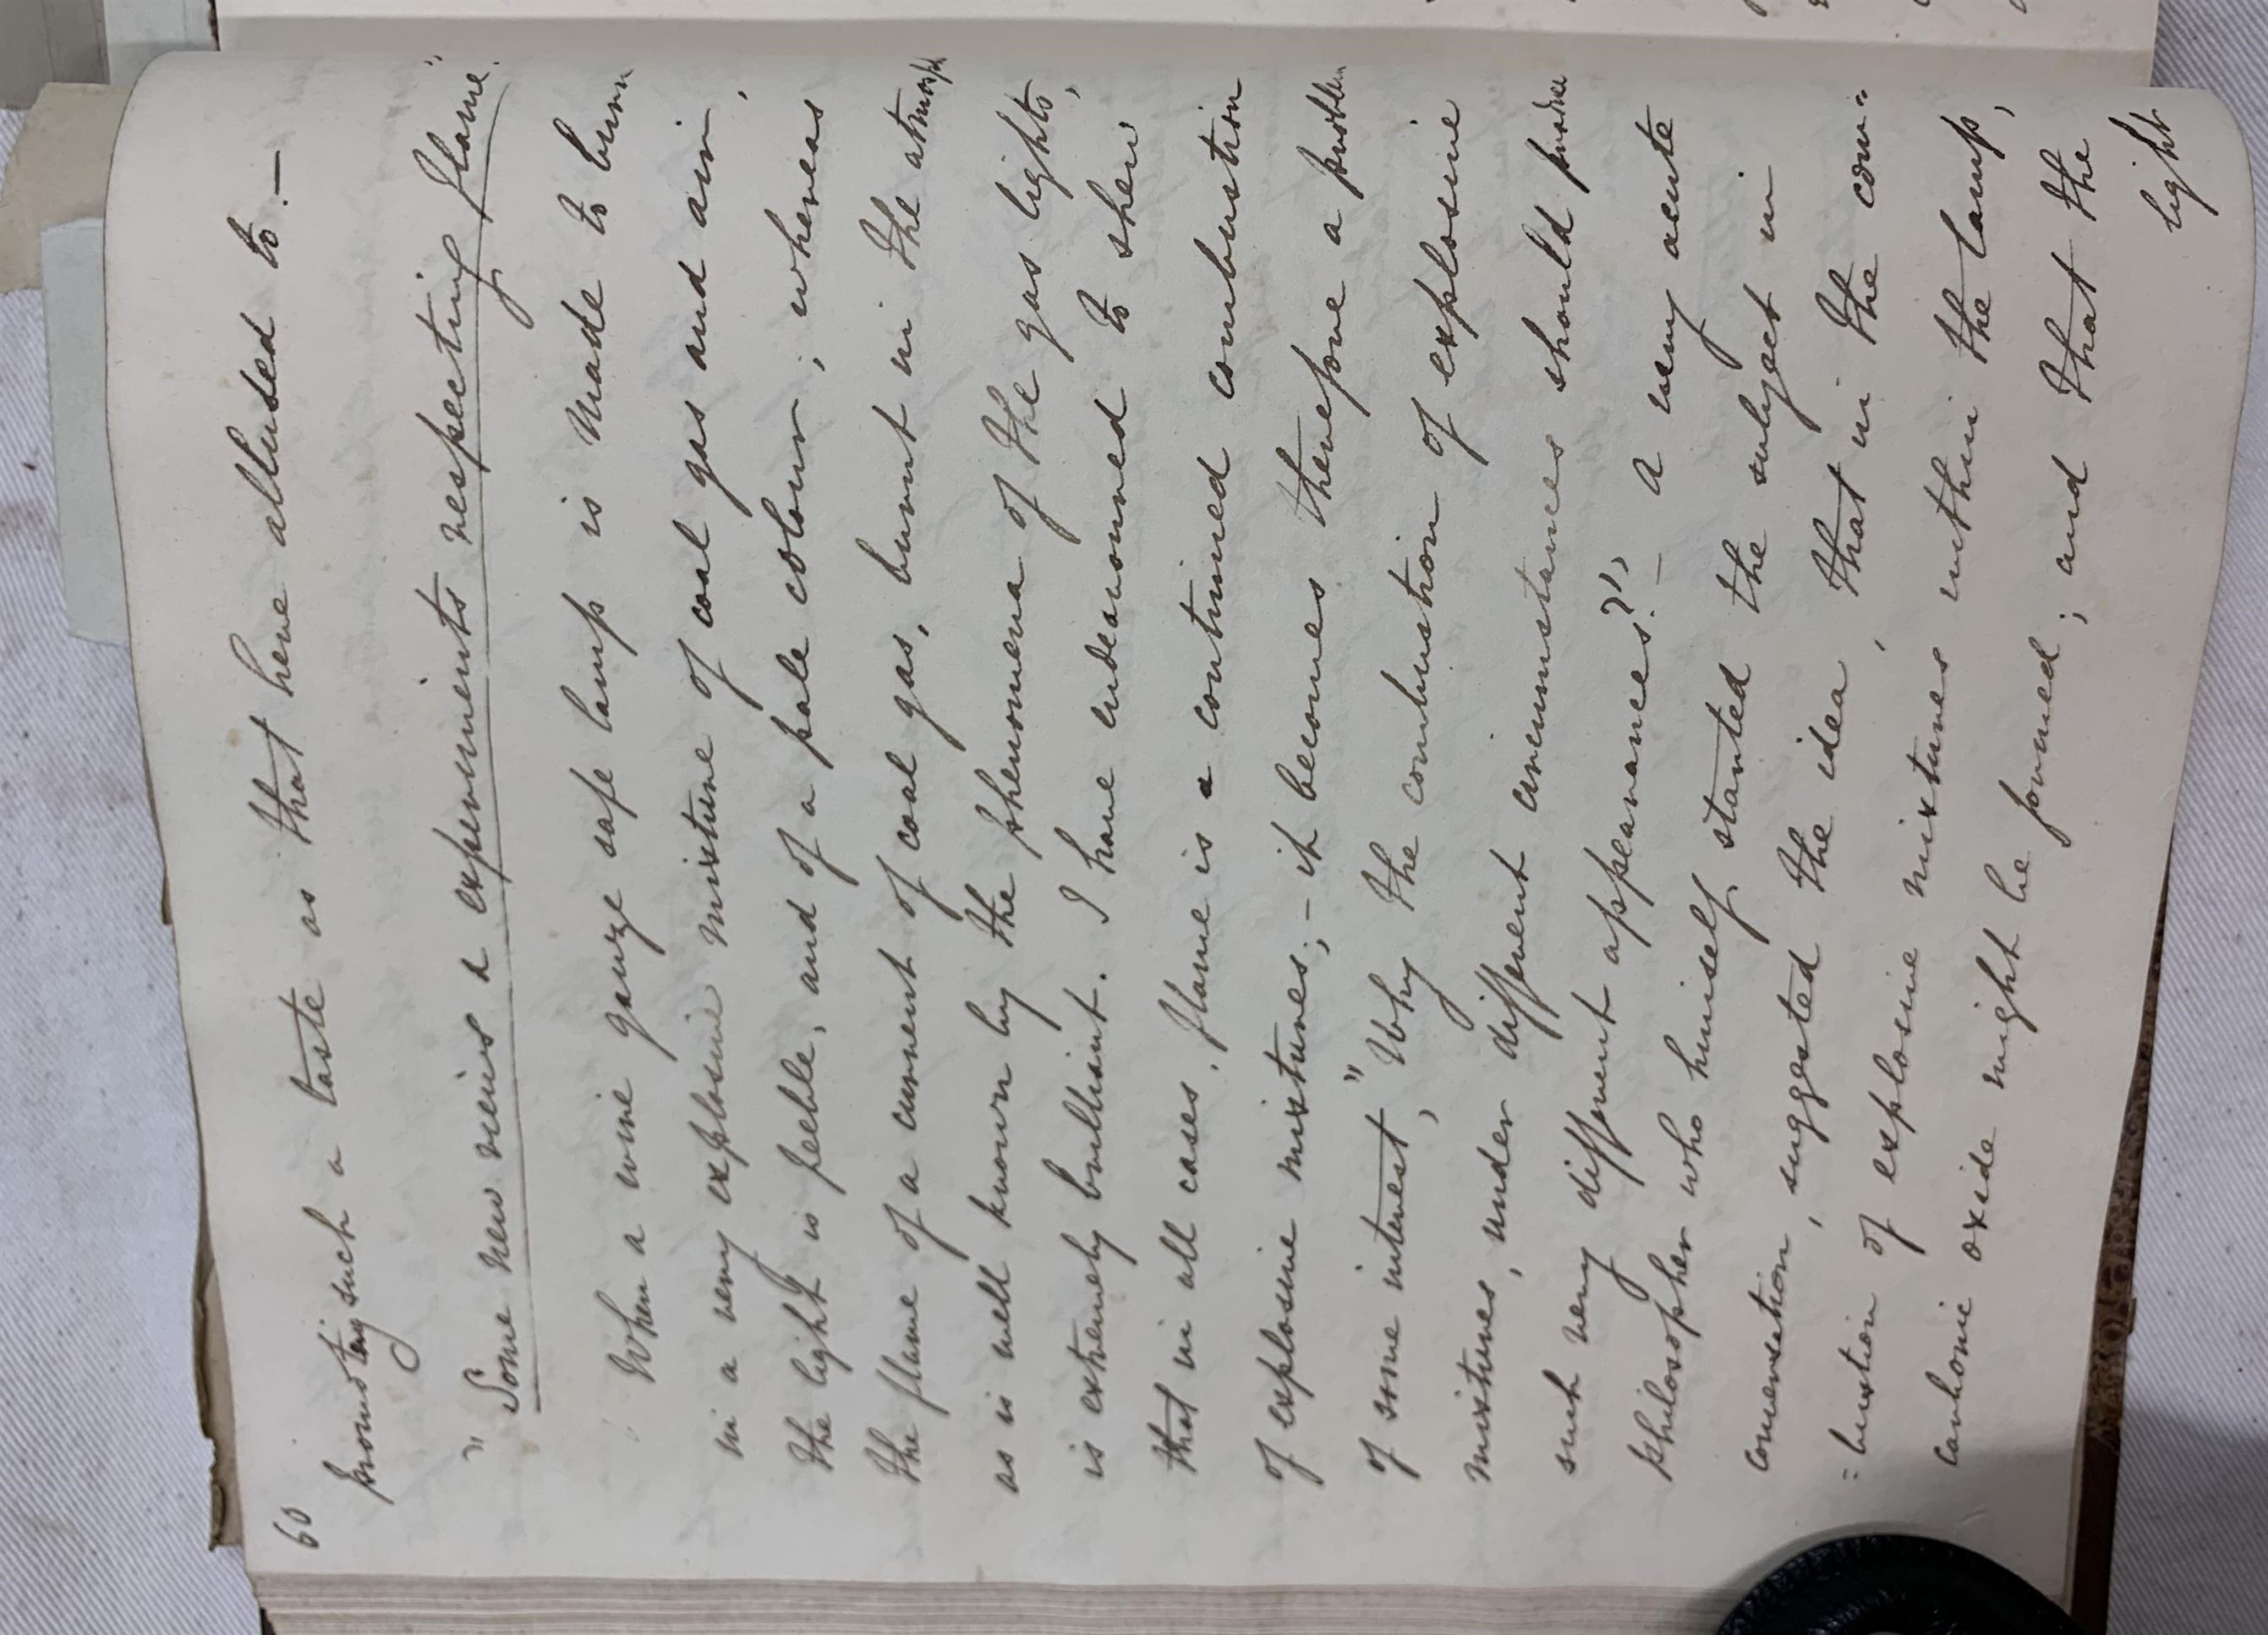 60
promoting such a taste as that here allused to. —
"Some new views & experiments respecting flame."
When a wire gauze safe lamp is made to burn
in a very explosive mixture of coal gas and air,
the light is feeble, and of a pale colour; whereas
the flame of a current of coal gas, burnt in the atmosph
as is well known by the phenomena of the gas lights,
is extremely brilliant. I have endeavoured to shew
that in all cases, flame is a continued combustion
of explosive mixtures; – it becomes therefore a problem
of some interest, "Why the combustion of explosive
mixtures, under different circumstances should produce
such very different appearances?" – A very acute
philosopher who himself started the subject in
conversation, suggested the idea, that in the com=
=bustion of explosive mixtures within the lamp,
carbonic oxide might be formed; and that the
light